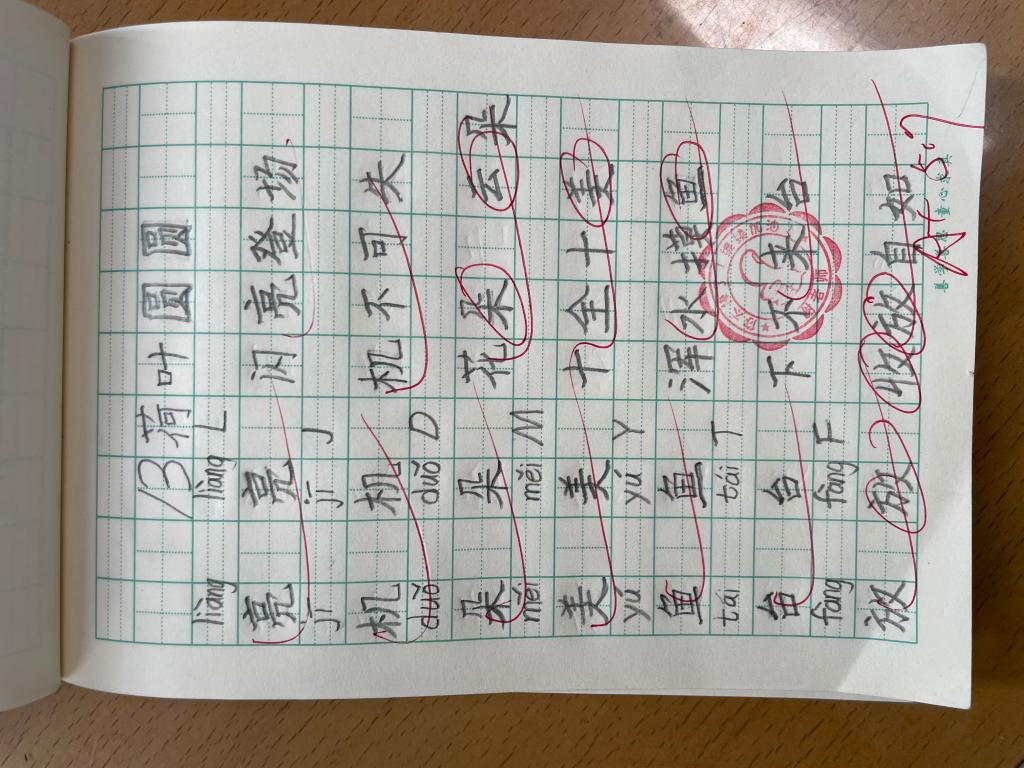 13 荷叶圆圆
liàng liàng L
亮 亮 闪亮登场
jī jī J
机 机 机不可失
duǒ duǒ D
朵 朵 花朵 云朵
měi měi M
美 美 十全十美
yú yú Y
鱼 鱼 浑水摸鱼
tái tái T
台 台 下不来台
fàng fàng F
放 放 收放自如